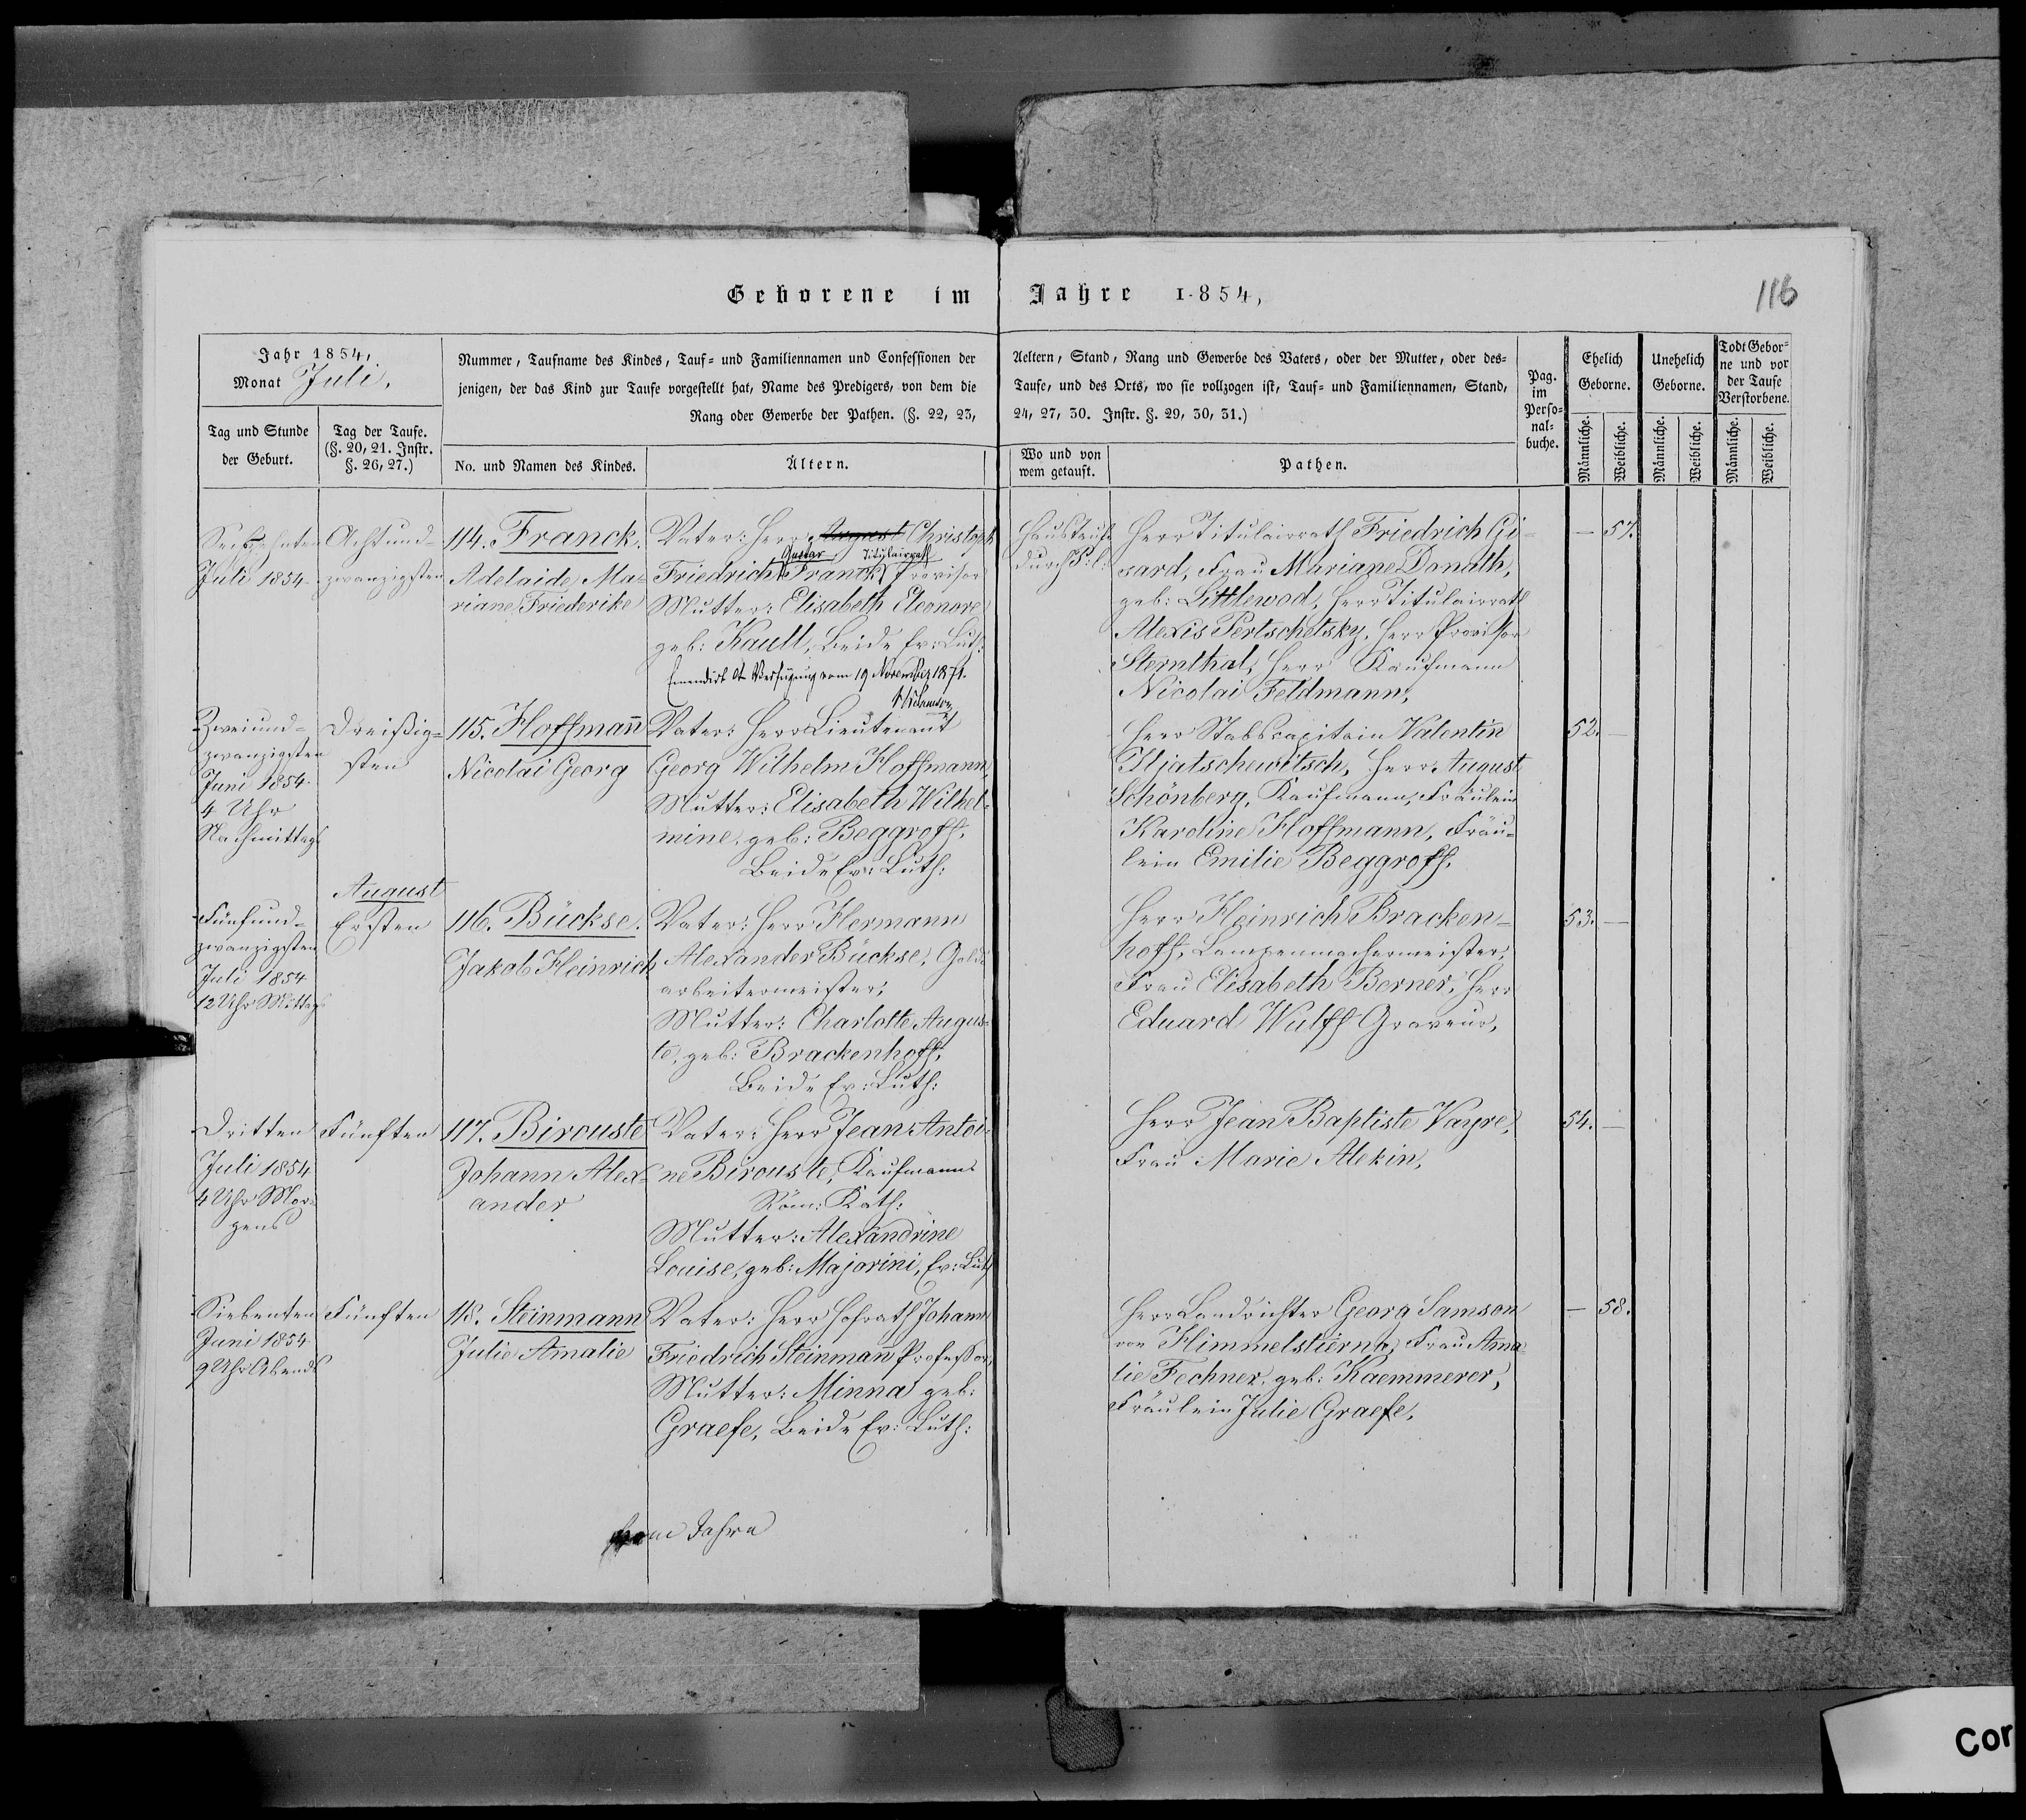 Geborene im Jahre 1854,
116
Jahr 1854,
Monat Juli.
Tag und Stunde
der Geburt.
Tag der Taufe.
(§. 20, 21. Instr.
§. 26, 27.)
Nummer, Taufname des Kindes, Tauf- und Familiennamen und Confessionen der
jenigen, der das Kind zur Taufe vorgestellt hat, Name des Predigers, von dem die
Rang oder Gewerbe der Pathen. (§. 22, 23,
No. und Namen des Kindes.
Ältern.
Aeltern, Stand, Rang und Gewerbe des Vaters, oder der Mutter, oder des-
Taufe, und des Orts, wo sie vollzogen ist, Tauf- und Familiennamen, Stand,
24, 27, 30. Instr. §. 29, 30, 31.)
Wo und von
wem getauft.
Pathen.
Pag.
im
Perso-
nal-
buche.
Ehelich
Geborne.
Unehelich
Geborne.
Todt Gebor-
ne und vor
der Taufe
Verstorbene.
Männliche.
Weibliche.
Männliche.
Weibliche.
Männliche.
Weibliche.
Sechzehnten
Juli 1854
Achtund-
zwanzigsten
114. Franck.
Adelaide Ma-
riane Friederike
Vater: Herr August Christoph
Gustav Titulairrath
Friedrich Franck Provisor
Mutter: Elisabeth Eleonore
geb: Kaull, Beide Ev: Luth:
Emendirt Verfügung vom 19 November 1871.
Haustaufe
durch
Herr Titulairrath Friedrich Gi-
sard, Frau Mariane Donath,
geb: Littlewod, Herr Titulairrath
Alexis Pertschetsky, Herr Provisor
Sternthal, Herr Kaufmann
Nicolai Feldmann,
— 57.
Zweiund-
zwanzigsten
Juni 1854
4 Uhr
Nachmittags
Dreißig-
sten
115. Hoffmann
Nicolai Georg
Vater: Herr Lieutenant
Georg Wilhelm Hoffmann,
Mutter: Elisabeth Wilhel-
mine, geb: Beggroff,
Beide Ev: Luth:
Herr Stabscapitain Valentin
Iljatschewitsch, Herr August
Schönberg, Kaufmann, Fräulein
Karoline Hoffmann, Fräu-
lein Emilie Beggroff,
52. —
August
Fünfund-
zwanzigsten
Juli 1854
12 Uhr Mittags
Ersten
116. Bückse.
Jakob Heinrich
Vater: Herr Hermann
Alexander Bückse, Gold-
arbeitermeister,
Mutter: Charlotte Augus-
te, geb: Brackenhoff,
Beide Ev: Luth:
Herr Heinrich Bracken-
hoff, Lampenmachermeister,
Frau Elisabeth Berner, Herr
Eduard Wulff Graveur,
53. —
Dritten
Juli 1854
4 Uhr Mor-
gens
Fünften
117. Birouste
Johann Alex-
ander
Vater: Herr Jean Antoi-
ne Birouste, Kaufmann
Röm: Kath:
Mutter: Alexandrine
Louise, geb: Majorini, Ev: Luth
Herr Jean Baptiste Vayre,
Frau Marie Alekin,
54. —
Siebenten
Juni 1854
9 Uhr Abends
Fünften
118. Steinmann
Julie Amalie
Vater: Herr Hofrath Johann
Friedrich Steinmann Professor,
Mutter: Minna geb:
Graefe, Beide Ev: Luth:
Herr Landrichter Georg Samson
von Himmelstierna, Frau Ama-
lie Fechner, geb: Kaemmerer,
Fräulein Julie Graefe,
— 58.
Jahre
Cor